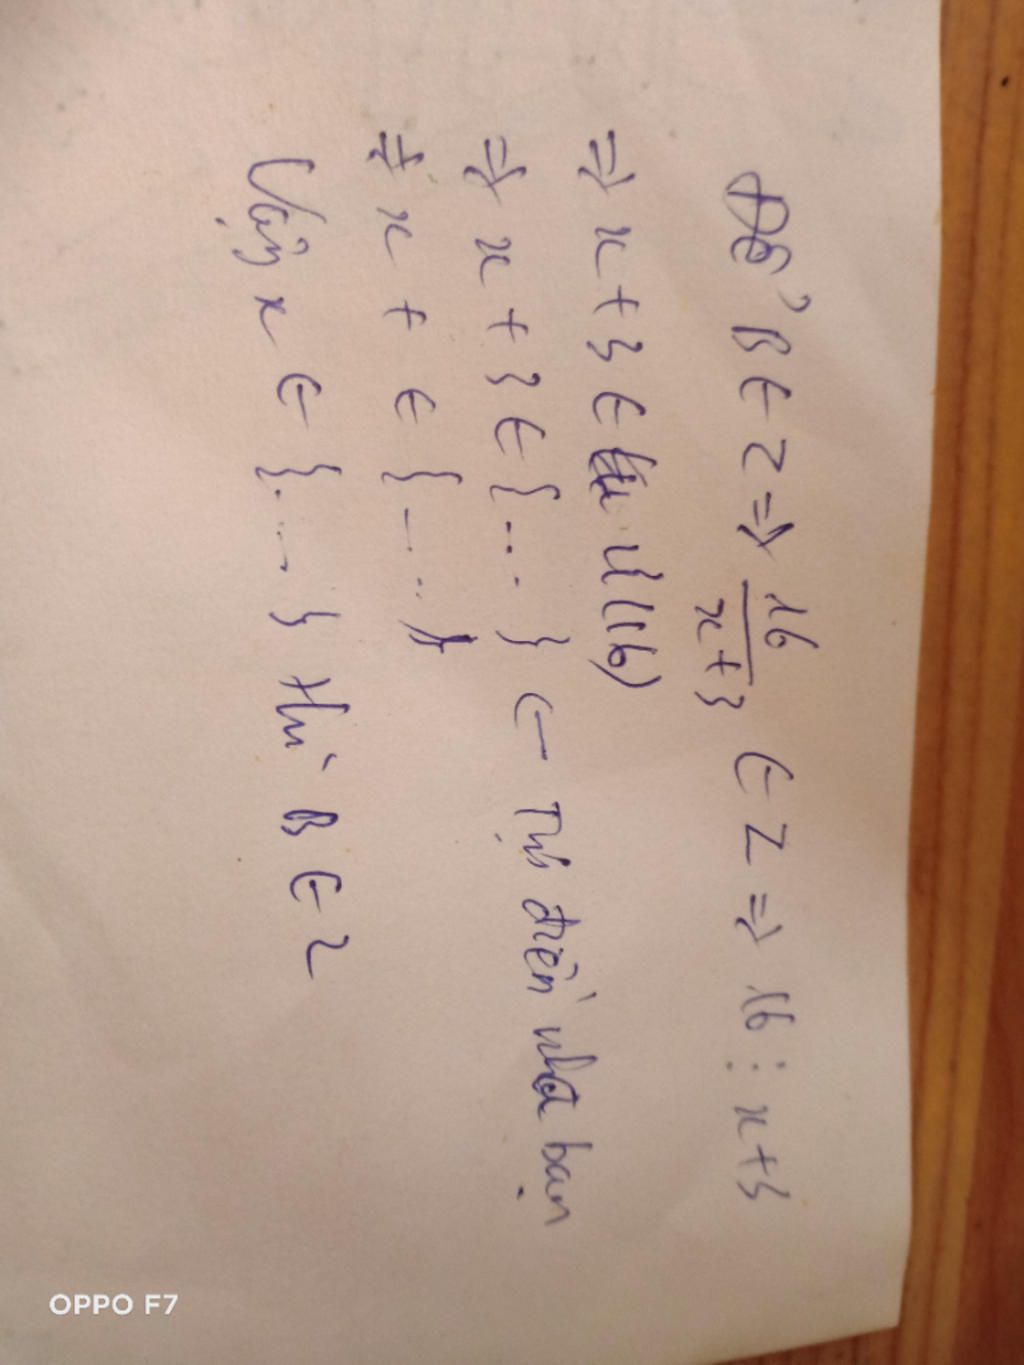 Để B ∈ Z => 16/x+3 ∈ Z => 16 ⋮ x+3
=> x+3 ∈ Ư(16)
=> x+3 ∈ {...} ← Tự điền nha bạn
=> x + ∈ {....}
Vậy x ∈ {...} thì B ∈ Z
OPPO F7